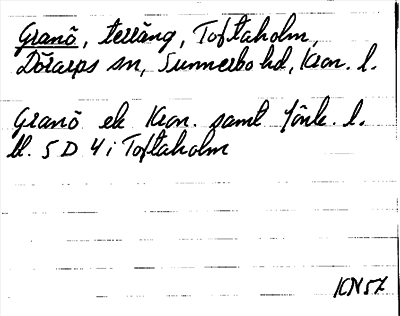 Granö, terräng, Toftaholm,
Dörarps sn, Sunnerbo hd, Kron. l.
Granö ek Kron. samt Jönk. l.
bl. 5 D 4 i Toftaholm
KN57